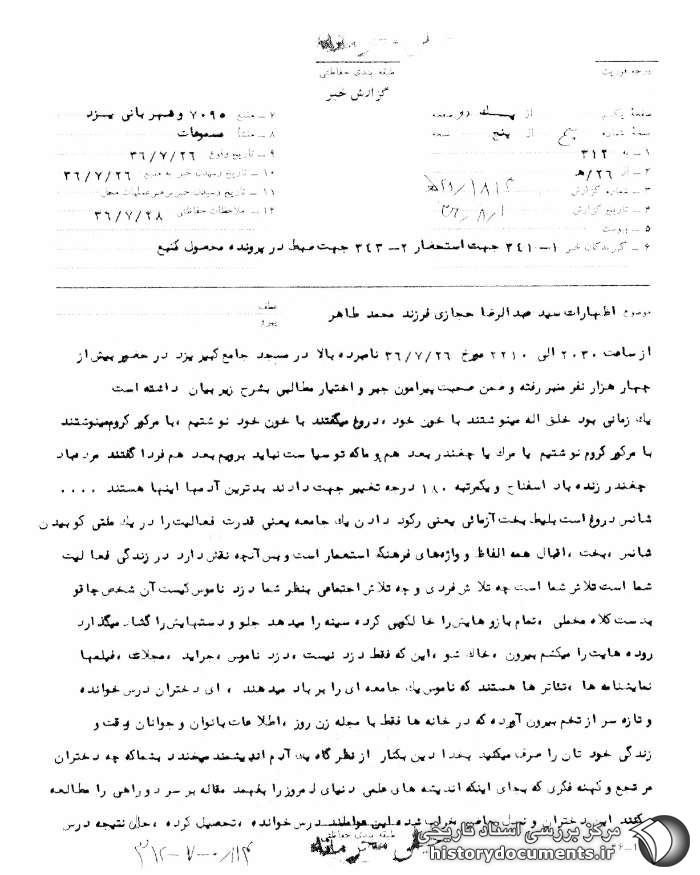 درجه فوریت
طبقه بندی حفاظتی
گزارش خبر
صفحه یکم از پنج صفحه
نسخه شماره از پنج نسخه
۱ – به ۳۱۲
۲ – از ۲۶/ﻫ
۳ – شماره گزارش
۴ – تاریخ گزارش
۵ – پیوست
۶ – گیرندگان خبر ۱- ۳۴۱ جهت استحضار ۲- ۳۴۳ جهت ضبط در پرونده محصول کنیع
۷ – منبع ۷۰۹۵ و شهربانی یزد
۸ – منشأ مسموعات
۹ – تاریخ وقوع ۳۶/۷/۲۶
۱۰ – تاریخ رسیدن خبر به منبع ۳۶/۷/۲۶
۱۱ – تاریخ رسیدن خبر برهبر عملیات محل
۱۲ – ملاحظات حفاظتی ۳۶/۷/۲۸
موضوع اظهارات سید عبدالرضا حجازی فرزند محمد طاهر
عطف
پیرو
از ساعت ۲۰۳۰ الی ۲۲۱۰ مورخ ۳۶/۷/۲۶ نامبرده بالا در مسجد جامع کبیر یزد در حضور بیش از
چهار هزار نفر منبر رفته و ضمن صحبت پیرامون جبر و اختیار مطالبی بشرح زیر بیان داشته است
یك زمانی بود خلق اله مینوشتند با خون خود ،دروغ میگفتند با خون خود نوشتیم ،با مرکور کروم مینوشتند
با مرکور کروم نوشتیم یا مرك یا چغندر بعد هم و ماکه تو سیاست نباید برویم بعد هم فردا گفتند مرده باد
چغندر زنده باد اسفناج و یکمرتبه ۱۸۰ درجه تغییر جهت دادند بدترین آدمها اینها هستند ....
شانس دروغ است بلیط بخت آزمائی یعنی رکود دادن یك جامعه یعنی قدرت فعالیت را در یك ملتی کوبیدن
شانس ،بخت ،اقبال همه الفاظ و واژه‌های فرهنگ استعمار است و بس آنچه نقش دارد در زندگی فعالیت
شما است تلاش شما است چه تلاش فردی و چه تلاش اجتماعی بنظر شما دزد ناموس کیست آن شخص چاقو
بدست کلاه مخملی ،تمام بازوهایش را خالکوبی کرده سینه را میدهد جلو و دستهایش را گشاد میگذارد
روده هایت را میکشم بیرون ،خاك شو ،این که فقط دزد نیست ،دزد ناموس ،جراید ،مجلات ،فیلمها
نمایشنامه ها ،تئاتر ها هستند که ناموس یك جامعه ای را بر باد میدهند ، ای دختران درس خوانده
و تازه سر از تخم بیرون آورده که در خانه ها فقط با مجله زن روز ،اطلاعات بانوان و جوانان وقت و
زندگی خود تان را صرف میکنید بخدا دین بکنار از نظرگاه یك آدم اندیشمند میخندد بشماکه چه دختران
مرتجع و کهنه فکری که بجای اینکه اندیشه های علمی دنیای امروز را بفهمد مقاله بر سر دو راهی را مطالعه
کنند این دختران و نسل خراب شده این عواملند درس خوانده ،تحصیل کرده ،حالا نتیجه درس
طبقه بندی حفاظتی
مرکز بررسی اسناد تاریخی
historydocuments.ir